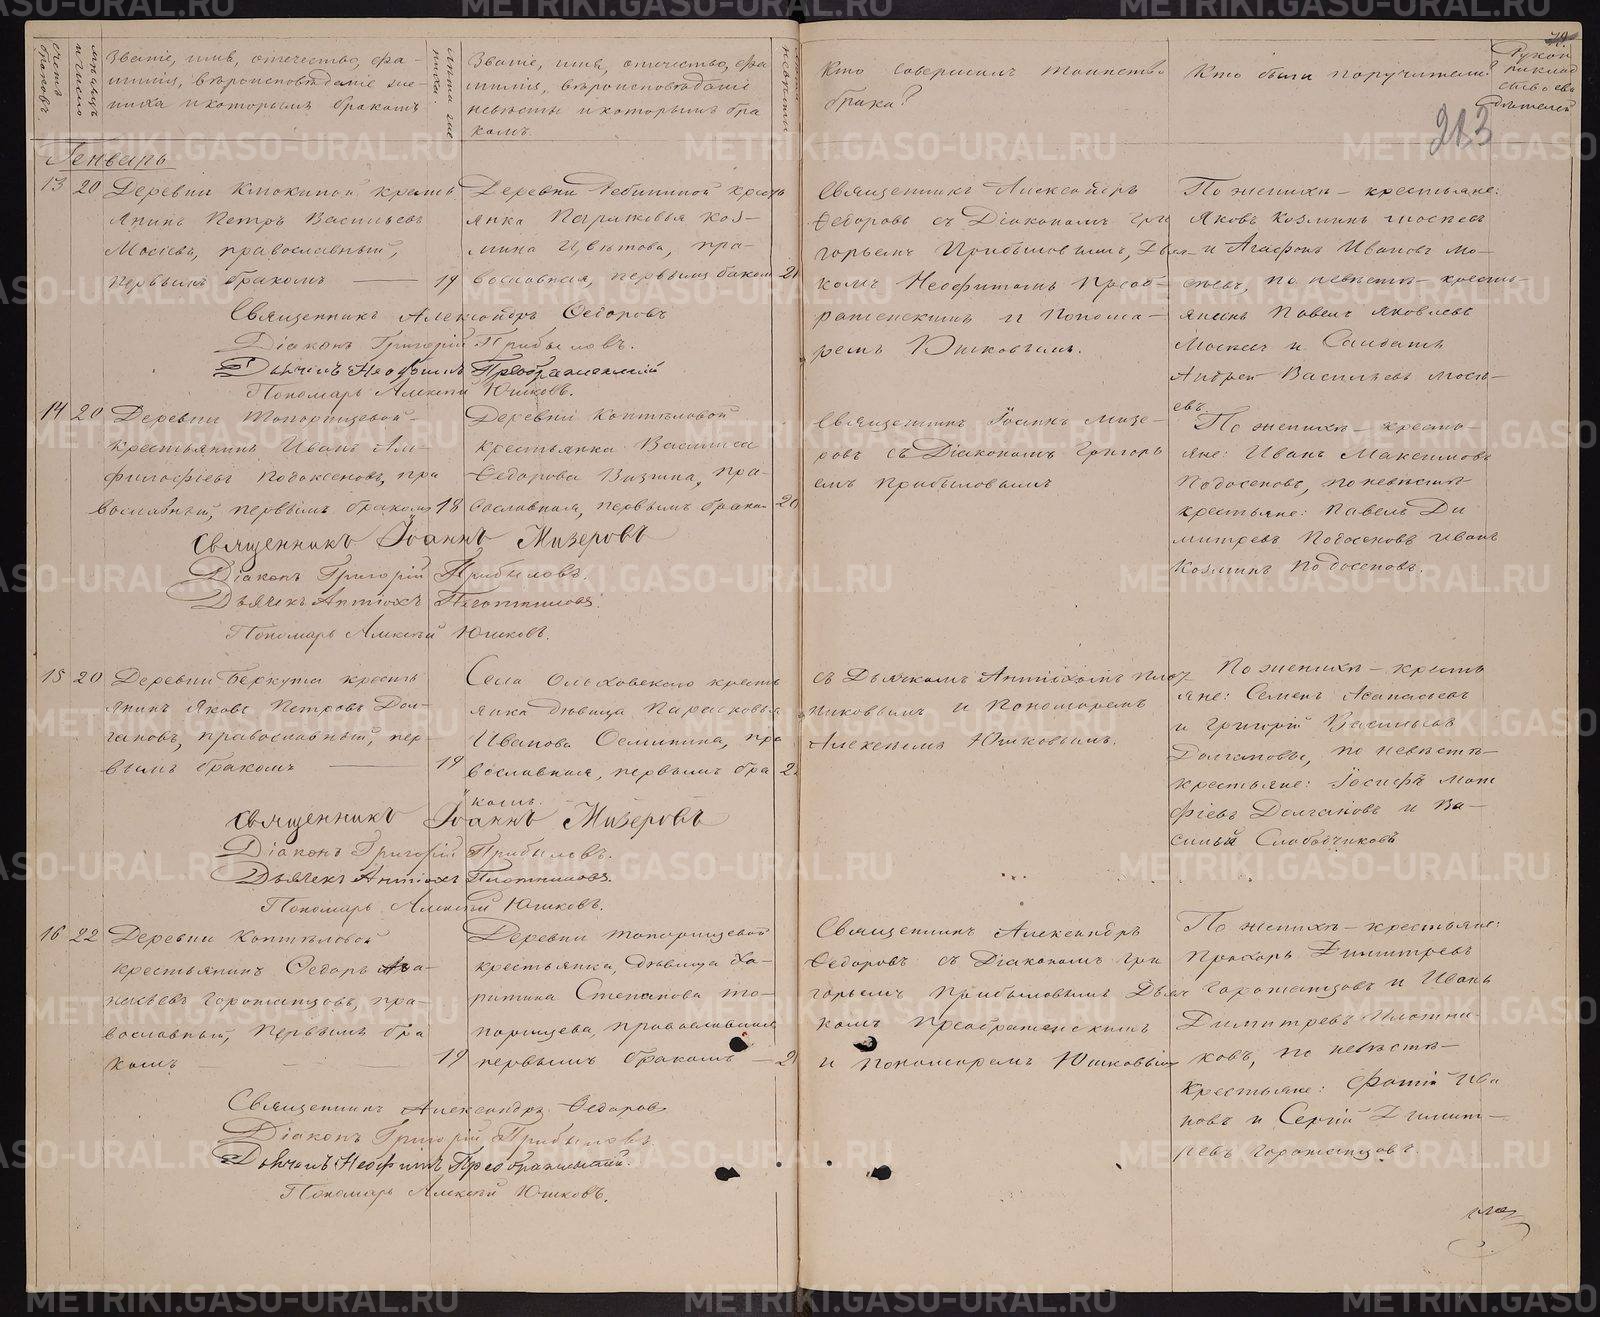 Званіе, имя, отечество, фа-
милія, вѣроисповѣданіе же-
ниха и которымъ бракомъ
Званіе, имя, отечество, фа
милія, вѣроисповѣданіе
невѣсты и которымъ бра
комъ.
Кто совершилъ таинство
брака?
Кто были поручители?
213
Генварь
13 20 Деревни крестья
янинъ Петръ Васильевъ
Мосѣевъ, православный,
первымъ бракомъ 19
Деревни крестья
янка Парасковья Коз-
мина Цвѣтова, пра-
вославная, первымъ бракомъ 21
Священникъ Александръ
Ѳедоровъ съ Діакономъ Гри
горьемъ Прибыловымъ, Дьяч-
комъ Неофитомъ Преоб-
раженскимъ и Понома-
ремъ Юшковымъ.
По женихѣ — крестьяне:
Яковъ Козминъ Мосѣевъ
и Агафонъ Ивановъ Мо-
сѣевъ, по невѣстѣ — кресть-
янинъ Павелъ Яковлевъ
Мосѣевъ и Солдатъ
Андрей Васильевъ Мосѣ-
евъ.
Священникъ Александръ Ѳедоровъ
Діаконъ Григорій Прибыловъ.
Дьячекъ Неофитъ Преображенскій
Пономарь Алексѣй Юшковъ.
14 20 Деревни Топорищевой
крестьянинъ Иванъ
Подоксеновъ, пра
вославный, первымъ бракомъ 18
Деревни Коптѣловой
крестьянка Васписа
Ѳедорова, пра-
вославная, первымъ бракомъ 20
Священникъ Іоаннъ Мизе-
ровъ съ Діакономъ Григорь
емъ Прибыловымъ
По женихѣ — кресть-
яне: Иванъ Максимовъ
Подосеновъ, по невѣстѣ
крестьяне: Павелъ Ди
митревъ Подосеновъ Иванъ
Козминъ Подосеновъ.
Священникъ Іоаннъ Мизеровъ
Діаконъ Григорій Прибыловъ.
Дьячекъ Антіохъ Плотниковъ.
Пономарь Алексѣй Юшковъ.
15 20 Деревни Беркута кресть
янинъ Яковъ Петровъ Дол-
гановъ, православный, пер-
вымъ бракомъ 19
Села Ольховскаго кресть
янка дѣвица Парасковья
Иванова Осминина, пра
вославная, первымъ бра
комъ.
съ Дьячкомъ Антіохомъ Плот
никовымъ и Пономоремъ
Алексѣемъ Юшковымъ.
По женихѣ — кресть
яне: Семенъ Аѳанасьевъ
и Григорій Васильевъ
Долгановы, по невѣстѣ —
крестьяне: Іосифъ Мат
фіевъ Долгановъ и Ва-
силий Слободчиковъ
Священникъ Іоаннъ Мизеровъ
Діаконъ Григорій Прибыловъ.
Дьячекъ Антіохъ Плотниковъ.
Пономарь Алексѣй Юшковъ.
16 22 Деревни Коптѣловой
крестьянинъ Ѳедоръ Аѳа-
насьевъ Горожанцовъ, пра-
вославный, первымъ бра
комъ 19
Деревни Топорищевой
крестьянка, дѣвица Ха-
ритина Степанова То-
порищева, православная
первымъ бракомъ — 21
Священникъ Александръ
Ѳедоровъ съ Діакономъ Гри
горьемъ Прибыловымъ Дьяч
комъ Преображенскимъ
и Пономоремъ Юшковымъ
По женихѣ — крестьяне:
Прохоръ Димитревъ
Горожанцовъ и Иванъ
Димитревъ Плотни-
ковъ, по невѣстѣ —
Крестьяне: Фотій Ива
новъ и Сергій Димит-
ревъ Горожанцовъ.
Священникъ Александръ Ѳедоровъ
Діаконъ Григорій Прибыловъ.
Дьячекъ Неофитъ Преображенскій.
Пономарь Алексѣй Юшковъ.
METRIKI.GASO-URAL.RU